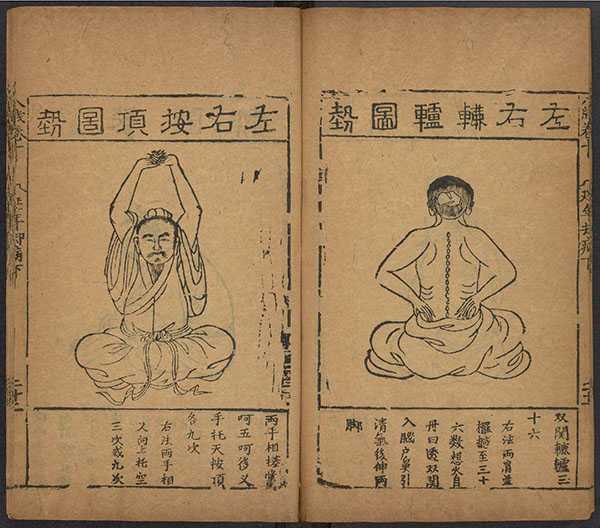 左右轆轤圖勢
双関轆轤三
十六
右法両肩並
擺撼至三十
六数想火自
丹田透双関
入脳户鼻引
清氣後伸両
脚
左右按頂圖勢
両手相搓當
呵五呵後叉
手托天按頂
各九次
右法両手相
叉向上托空
三次或九次
延年却病下